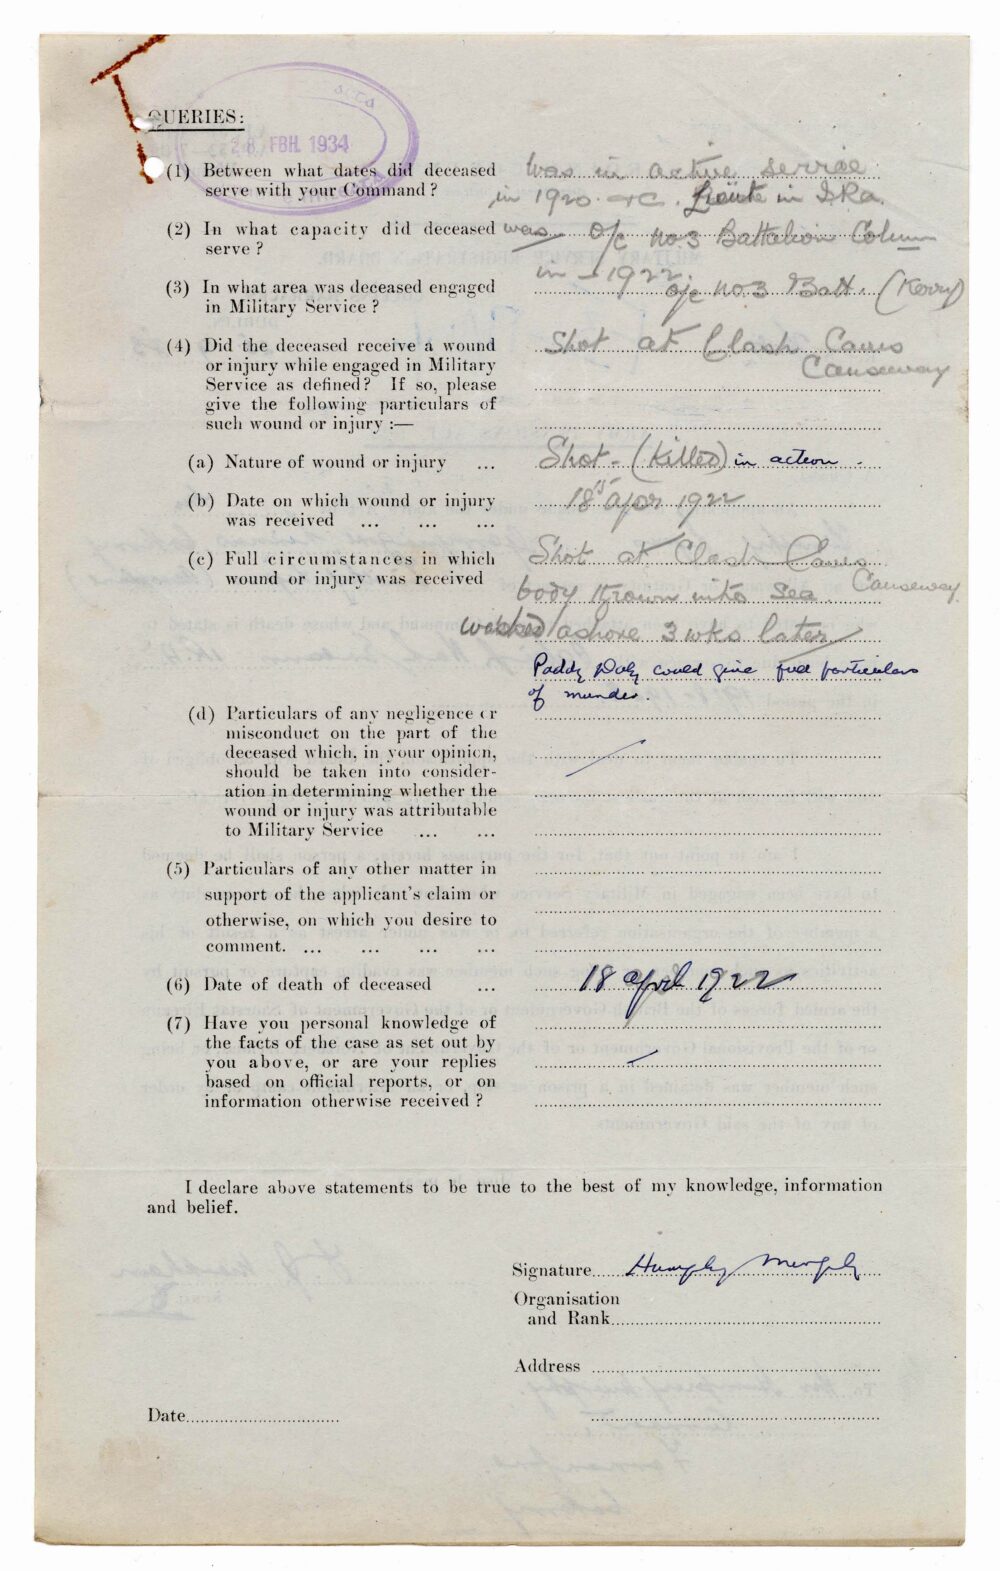 QUERIES:
28 FBH. 1934
(1) Between what dates did deceased
serve with your Command?
was in active service
in 1920 &c. Lieut in IRA.
(2) In what capacity did deceased
serve?
was O/c No. 3 Battalion Column
in 1922.
(3) In what area was deceased engaged
in Military Service?
o/c No 3 Batt. (Kerry)
(4) Did the deceased receive a wound
or injury while engaged in Military
Service as defined? If so, please
give the following particulars of
such wound or injury :—
Shot at Clash Caves
Causeway
(a) Nature of wound or injury ...
Shot - (Killed) in action.
(b) Date on which wound or injury
was received ... ... ...
18th Apr 1922
(c) Full circumstances in which
wound or injury was received
Shot at Clash Caves
Causeway.
body thrown into sea.
washed ashore 3 wks later
Paddy Daly could give full particulars
of murder.
(d) Particulars of any negligence or
misconduct on the part of the
deceased which, in your opinion,
should be taken into consider-
ation in determining whether the
wound or injury was attributable
to Military Service ... ...
(5) Particulars of any other matter in
support of the applicant's claim or
otherwise, on which you desire to
comment. ... ... ... ...
(6) Date of death of deceased ...
18 April 1922
(7) Have you personal knowledge of
the facts of the case as set out by
you above, or are your replies
based on official reports, or on
information otherwise received?
I declare above statements to be true to the best of my knowledge, information
and belief.
Signature Humphy Murphy
Organisation
and Rank
Address
Date